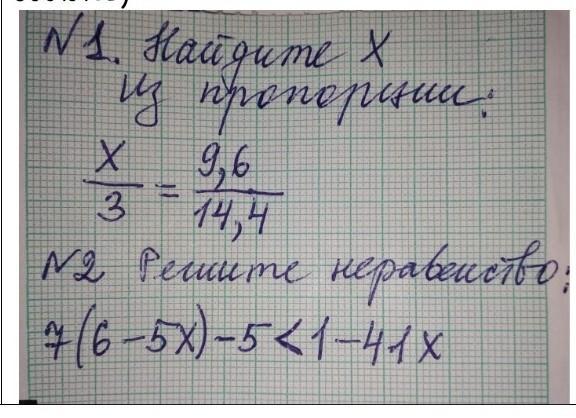 N1. Найдите X
Из пропорции:
X/3 = 9,6/14,4
N2 Решите неравенство:
7(6-5X)-5<1-41X